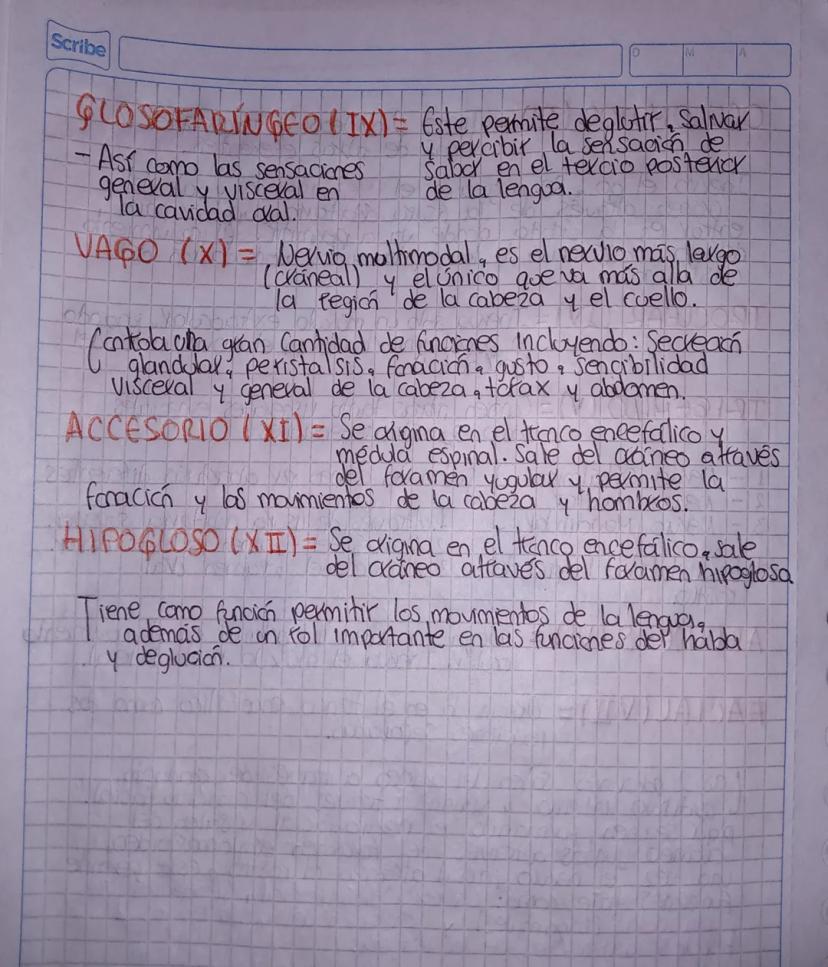 Scribe
D M A
GLOSOFARÍNGEO (IX) = Este permite deglutir, salivar
y percibir la sensación de
sabor en el tercio posterior
de la lengua.
- Así como las sensaciones
general y visceral en
la cavidad oral.
VAGO (X) = Nervio multimodal, es el nervio más largo
(craneal) y el único que va más alla de
la región de la cabeza y el cuello.
Contola una gran cantidad de funciones incluyendo: Secreación
glandular, peristalsis, fonación, gusto, sencibilidad
visceral y general de la cabeza, tórax y abdomen.
ACCESORIO (XI) = Se origina en el tronco encefálico y
médula espinal. Sale del cráneo através
del foramen yugular y permite la
fonación y los movimientos de la cabeza y hombros.
HIPOGLOSO (XII) = Se origina en el tronco encefálico, sale
del cráneo através del foramen hipoglosa
Tiene como función permitir los movimientos de la lengua,
además de un rol importante en las funciones del habla
y deglución.